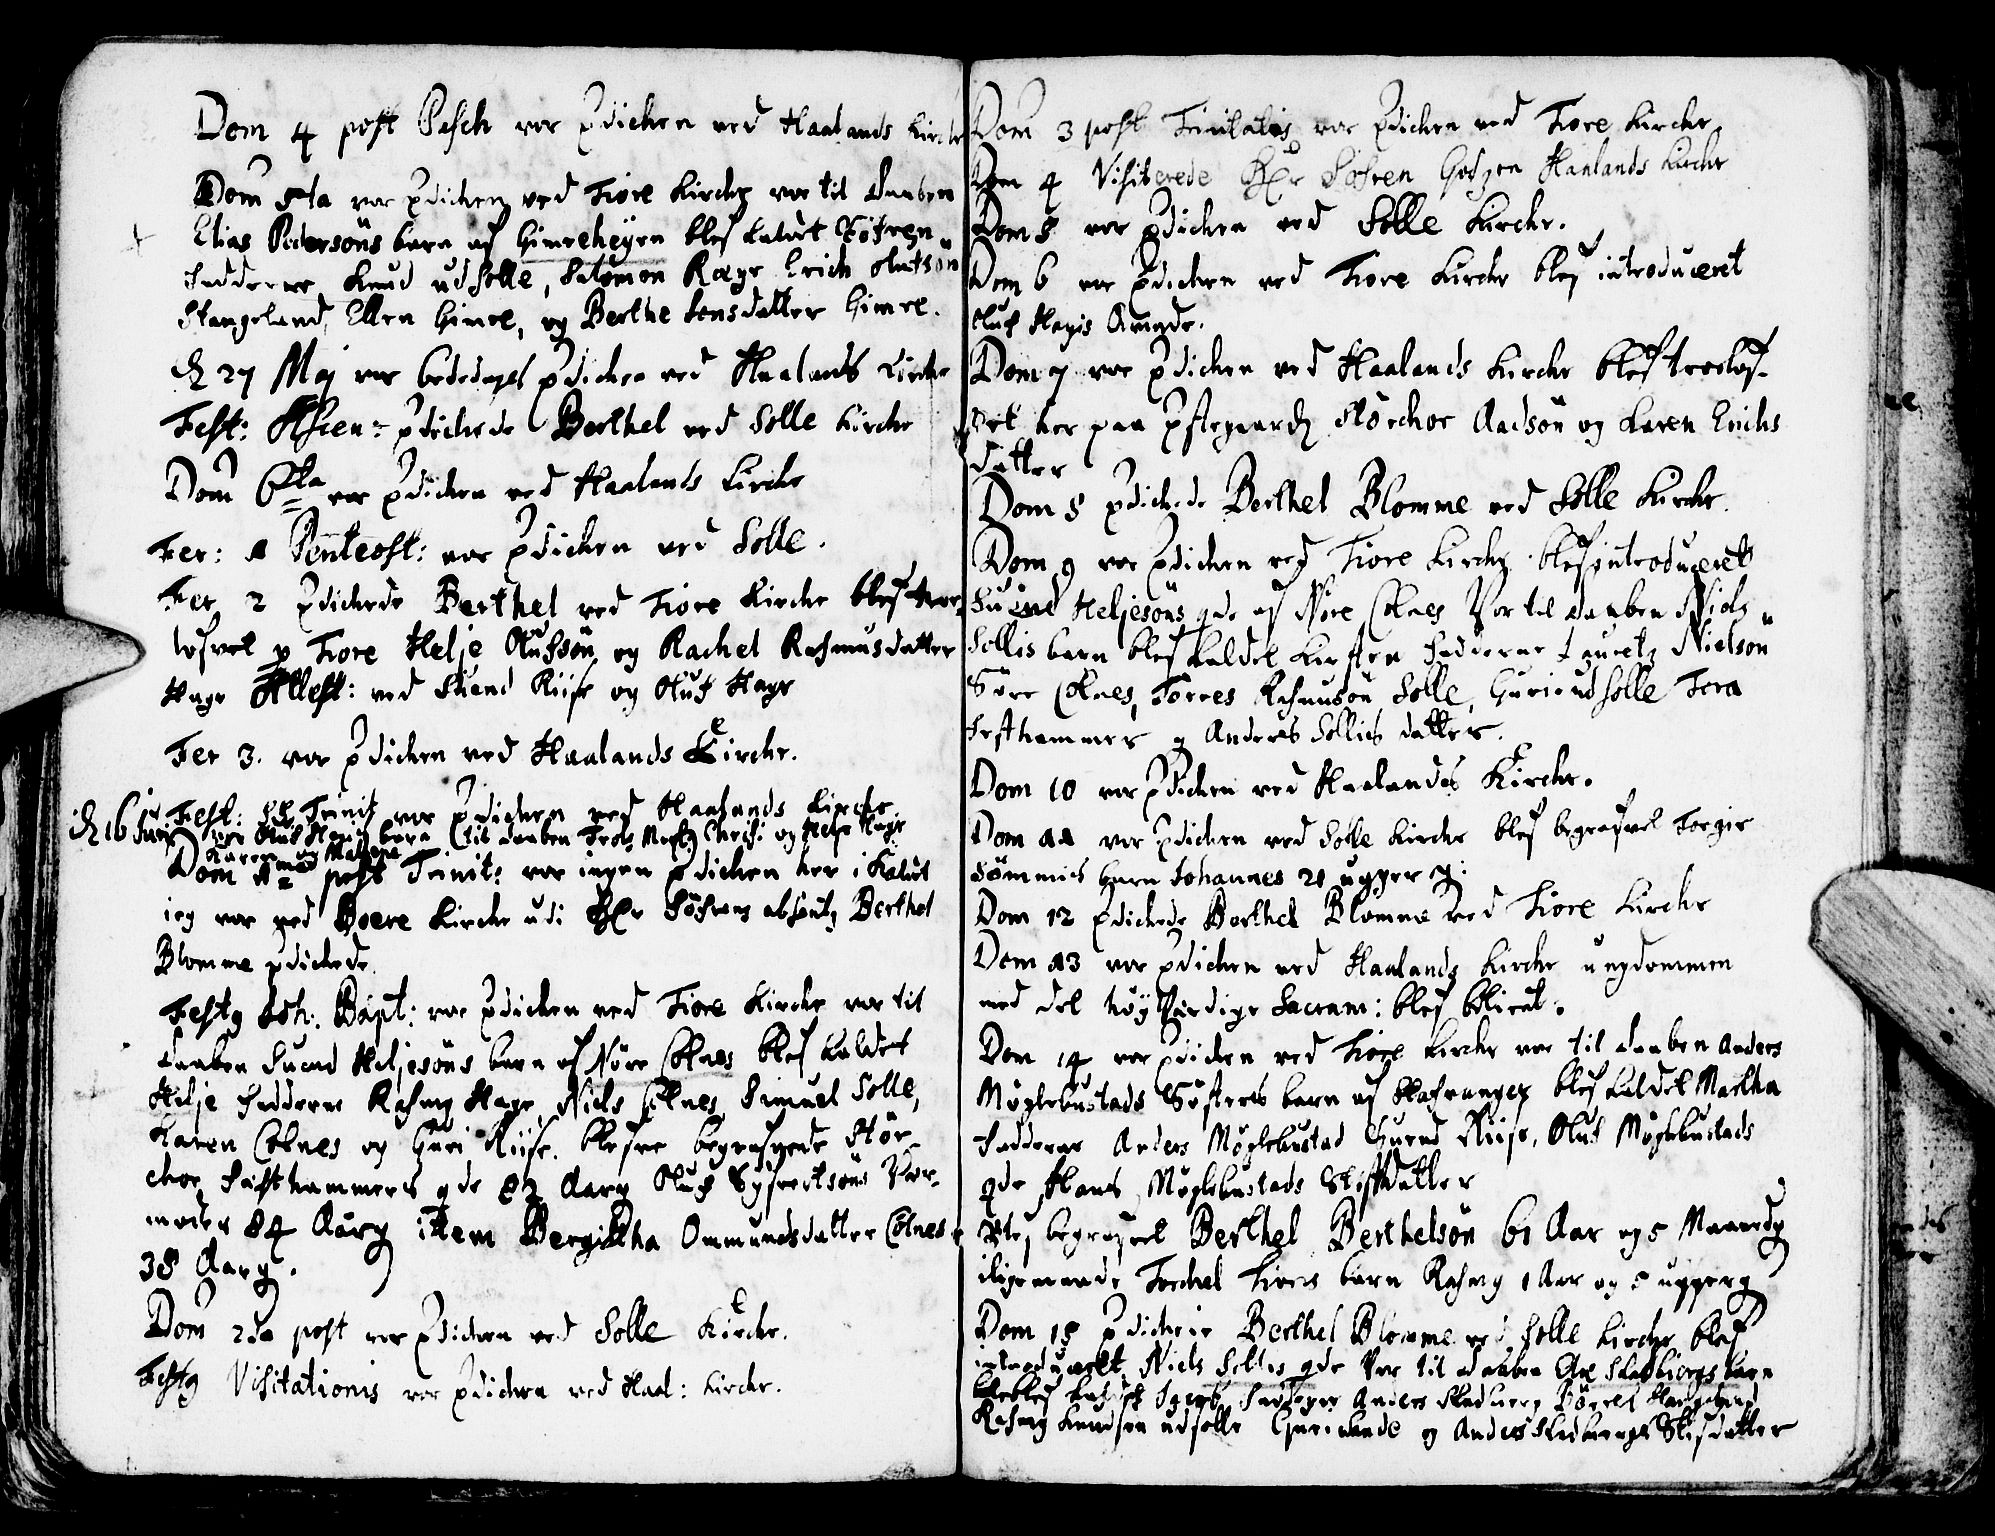 Dom 4 post Pasch var Prædichen ved Haalands Kirche
Dom 5ta var Prædichen ved Tiore Kirche var til Daaben
Elias Pedersøns barn af Gimreheyen blef kaldet Søfren
Fadderne Knud udsolle, Salomon Ræge Erich Olufsøn
Stangeland, Ellen Gimre, og Berthe Jensdatter Gimre.
d 27 Maj var bededagsprædichen ved Haalands Kirche
Fest: Ascen: prædichede Berthel ved Solle Kirche
Dom 6ta var Prædichen ved Haalands Kirche
Fer: 1 Pentecost: var Prædichen ved Solle.
Fer 2 prædichede Berthel ved Tiore Kirche blef troe
lofvet p Tiore Helje Olufsøn og Rachel Rasmusdatter
Hage Attest: ved Suend Riise og Oluf Hage
Fer 3. var Prædichen ved Haalands Kirche.
Fest: SS Trinit var Prædichen ved Haalands Kirche
d 16 Juni var Oluf barn til daaben og Helje Hage
Karen
Dom 1ma post Trinit: var ingen Prædichen her i Kaldet
ieg var ved Boere Kirche udi Hr Søfrens absentz Berthel
Blomme prædichede
Festo Joh: Bapt: var Prædichen ved Tiore Kirche var til
daaben Suend Heljesøns barn af Nøre Colnes blef kaldet
Helje Fadderne Rasmus Hage, Niels Colnes Simuel Solle,
Karen Colnes og Guri Riise. blefve begrafvede Stør
chor Festhammers qde 82 Aarg Oluf Syfvertsøns Vær
moder 84 Aarg item Bergittha Ommundsdatter Colnes
38 Aarg.
Dom 2da post var Prædichen ved Solle Kirche.
Festo Visitationis var Prædichen ved Haal: Kirche.
Dom 3 post Trinitatis var Prædichen ved Tiore Kirche
Dom 4 Visiterede Hr Søfren Godzen Haalands Kirche
Dom 5 var Prædichen ved Solle Kirche.
Dom 6 var Prædichen ved Tiore Kirche blef introduceret
Oluf Hagis qde.
Dom 7 var Prædichen ved Haalands Kirche blef troelof
vet her paa Præstegaard Størchor Aadsøn og Karen Erichs
datter
Dom 8 prædichede Berthel Blomme ved Solle Kirche.
Dom 9 var Prædichen ved Tiore Kirche blef introduceret
Suend Heljesøns qde af Nøre Colnes Var til daaben Niels
Sellis barn blef kaldet Kirsten Fadderne Nielsøn
Søre Colnes, Torres Rasmusøn Solle, Guri udsolle Tora
Festhammer og Anders Sellis datter.
Dom 10 var Prædichen ved Haalandes Kirche.
Dom 11 var Prædichen ved Solle Kirche blef begrafvet Torgir
Sømmis barn Johannes 21 ugger g:
Dom 12 prædichede Berthel Blomme ved Tiore Kirche
Dom 13 var Prædichen ved Haalands Kirche ungdommen
med det høyværdige Sacram: blef betient.
Dom 14 var Prædichen ved Tiore Kirche var til daaben Anders
Møglebustads Søsters barn af Stafvanger blef kaldet Martha
Fadderne Anders Møglebustad Suend Riise, Oluf Møglebustads
qde Hans Møglebustads Stifdatter
Blef begrafvet Berthel Berthelsøn 61 Aar og 5 Maaneder
iligemaade Torchel Tioris barn Rasmus 1 Aar og 5 ugger g
Dom 15 prædichede Berthel Blomme ved Solle Kirche blef
introduceret Niels Sellis qde Var til daaben Skadbiergs barn
blef kaldet Jacob, Fadderne Anders Skadberg
Rasmus Knudsøn udsolle Guri og Anders Skadbergs Stifdatter